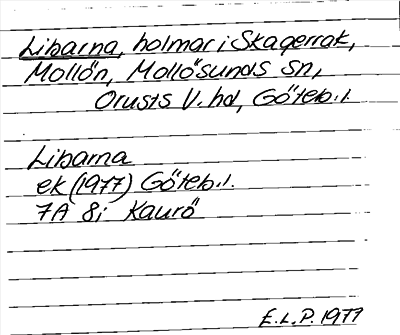 Libarna, holmar i Skagerrak,
Mollön, Mollösunds sn,
Orusts V. hd, Göteb. l.
Libarna
ek (1977) Göteb. l.
7A 8i Kaurö
E.L.P. 1977